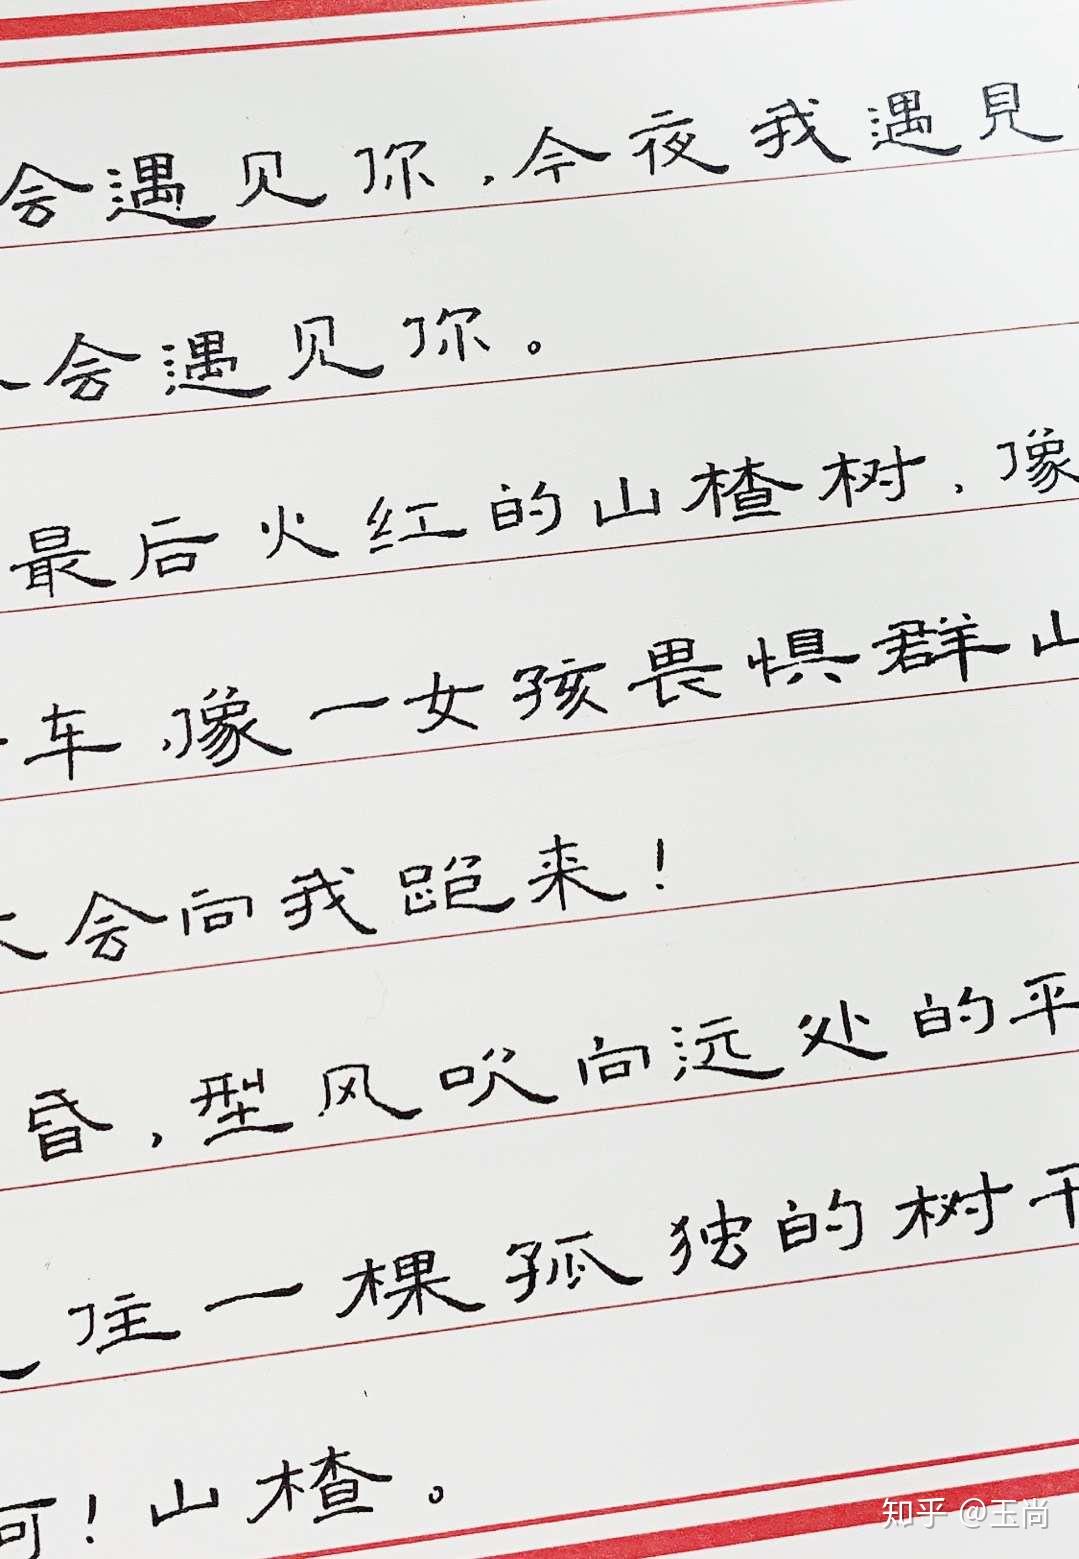 会遇见你,今夜我遇見
会遇见你。
最后火红的山楂树,像
车,像一女孩畏惧群山
会向我跑来!
昏,型风吹向远处的平
住一棵孤独的树干
可!山楂。
知乎 @玉尚